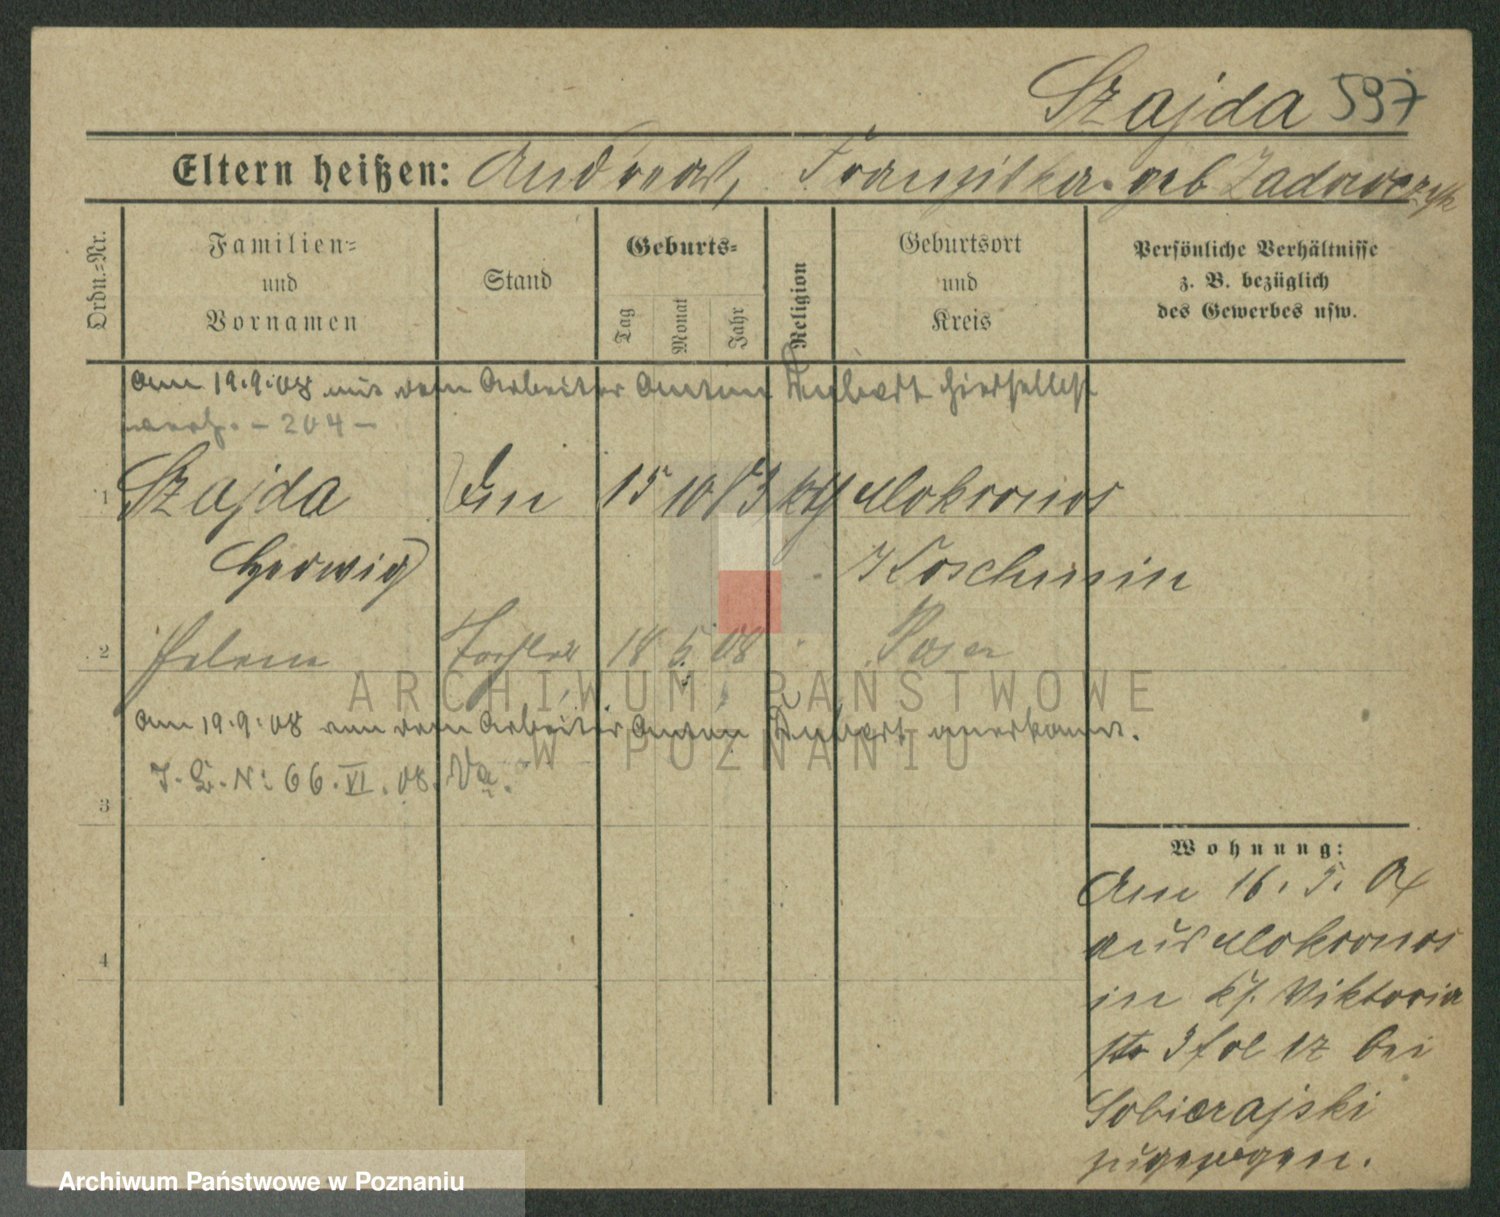 Szajda 597
Eltern heißen: Andreas, Franziska geb Zadowczyk
Ordn.=Nr.
Familien=
und
Vornamen
Stand
Geburts=
Tag
Monat
Jahr
Religion
Geburtsort
und
Kreis
Persönliche Verhältnisse
z. B. bezüglich
des Gewerbes usw.
Am 19.9.08 mit dem Arbeiter Anton hierselbst
verh. - 204 -
1 Szajda 15 10 83 kth Mokronos
Hedwig Koschmin
2 Helene Tochter 18 5 08 " Posen
Am 19.9.08 von dem Arbeiter Anton anerkannt.
J. B. No: 66. VI. 08. Va.
3
4
Wohnung:
Am 16. 5. 04
aus Mokronos
in Viktoria
str 3 bei
Sobierajski
zugezogen.
ARCHIWUM PAŃSTWOWE
W POZNANIU
Archiwum Państwowe w Poznaniu